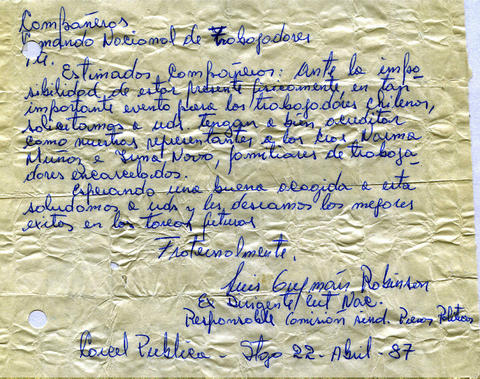 Compañeros
Comando Nacional de Trabajadores
Estimados Compañeros: Ante la impo
sibilidad de estar presente físicamente en tan
importante evento para los trabajadores chilenos,
solicitamos a uds. tengan a bien, acreditar
como nuestras representantes a las cras. Norma
Muñoz e Irma Novo, familiares de trabaja
dores encarcelados.
Esperando una buena acogida a esta
saludamos a uds y les, deseamos los mejores
exitos en las tareas futuras
Fraternalmente,
Luis Guzmán Robinson
Ex Dirigente Cut Nac.
Responsable Comisión sind. Presos Politicos
Carcel Publica - Stgo 22 - Abril - 87